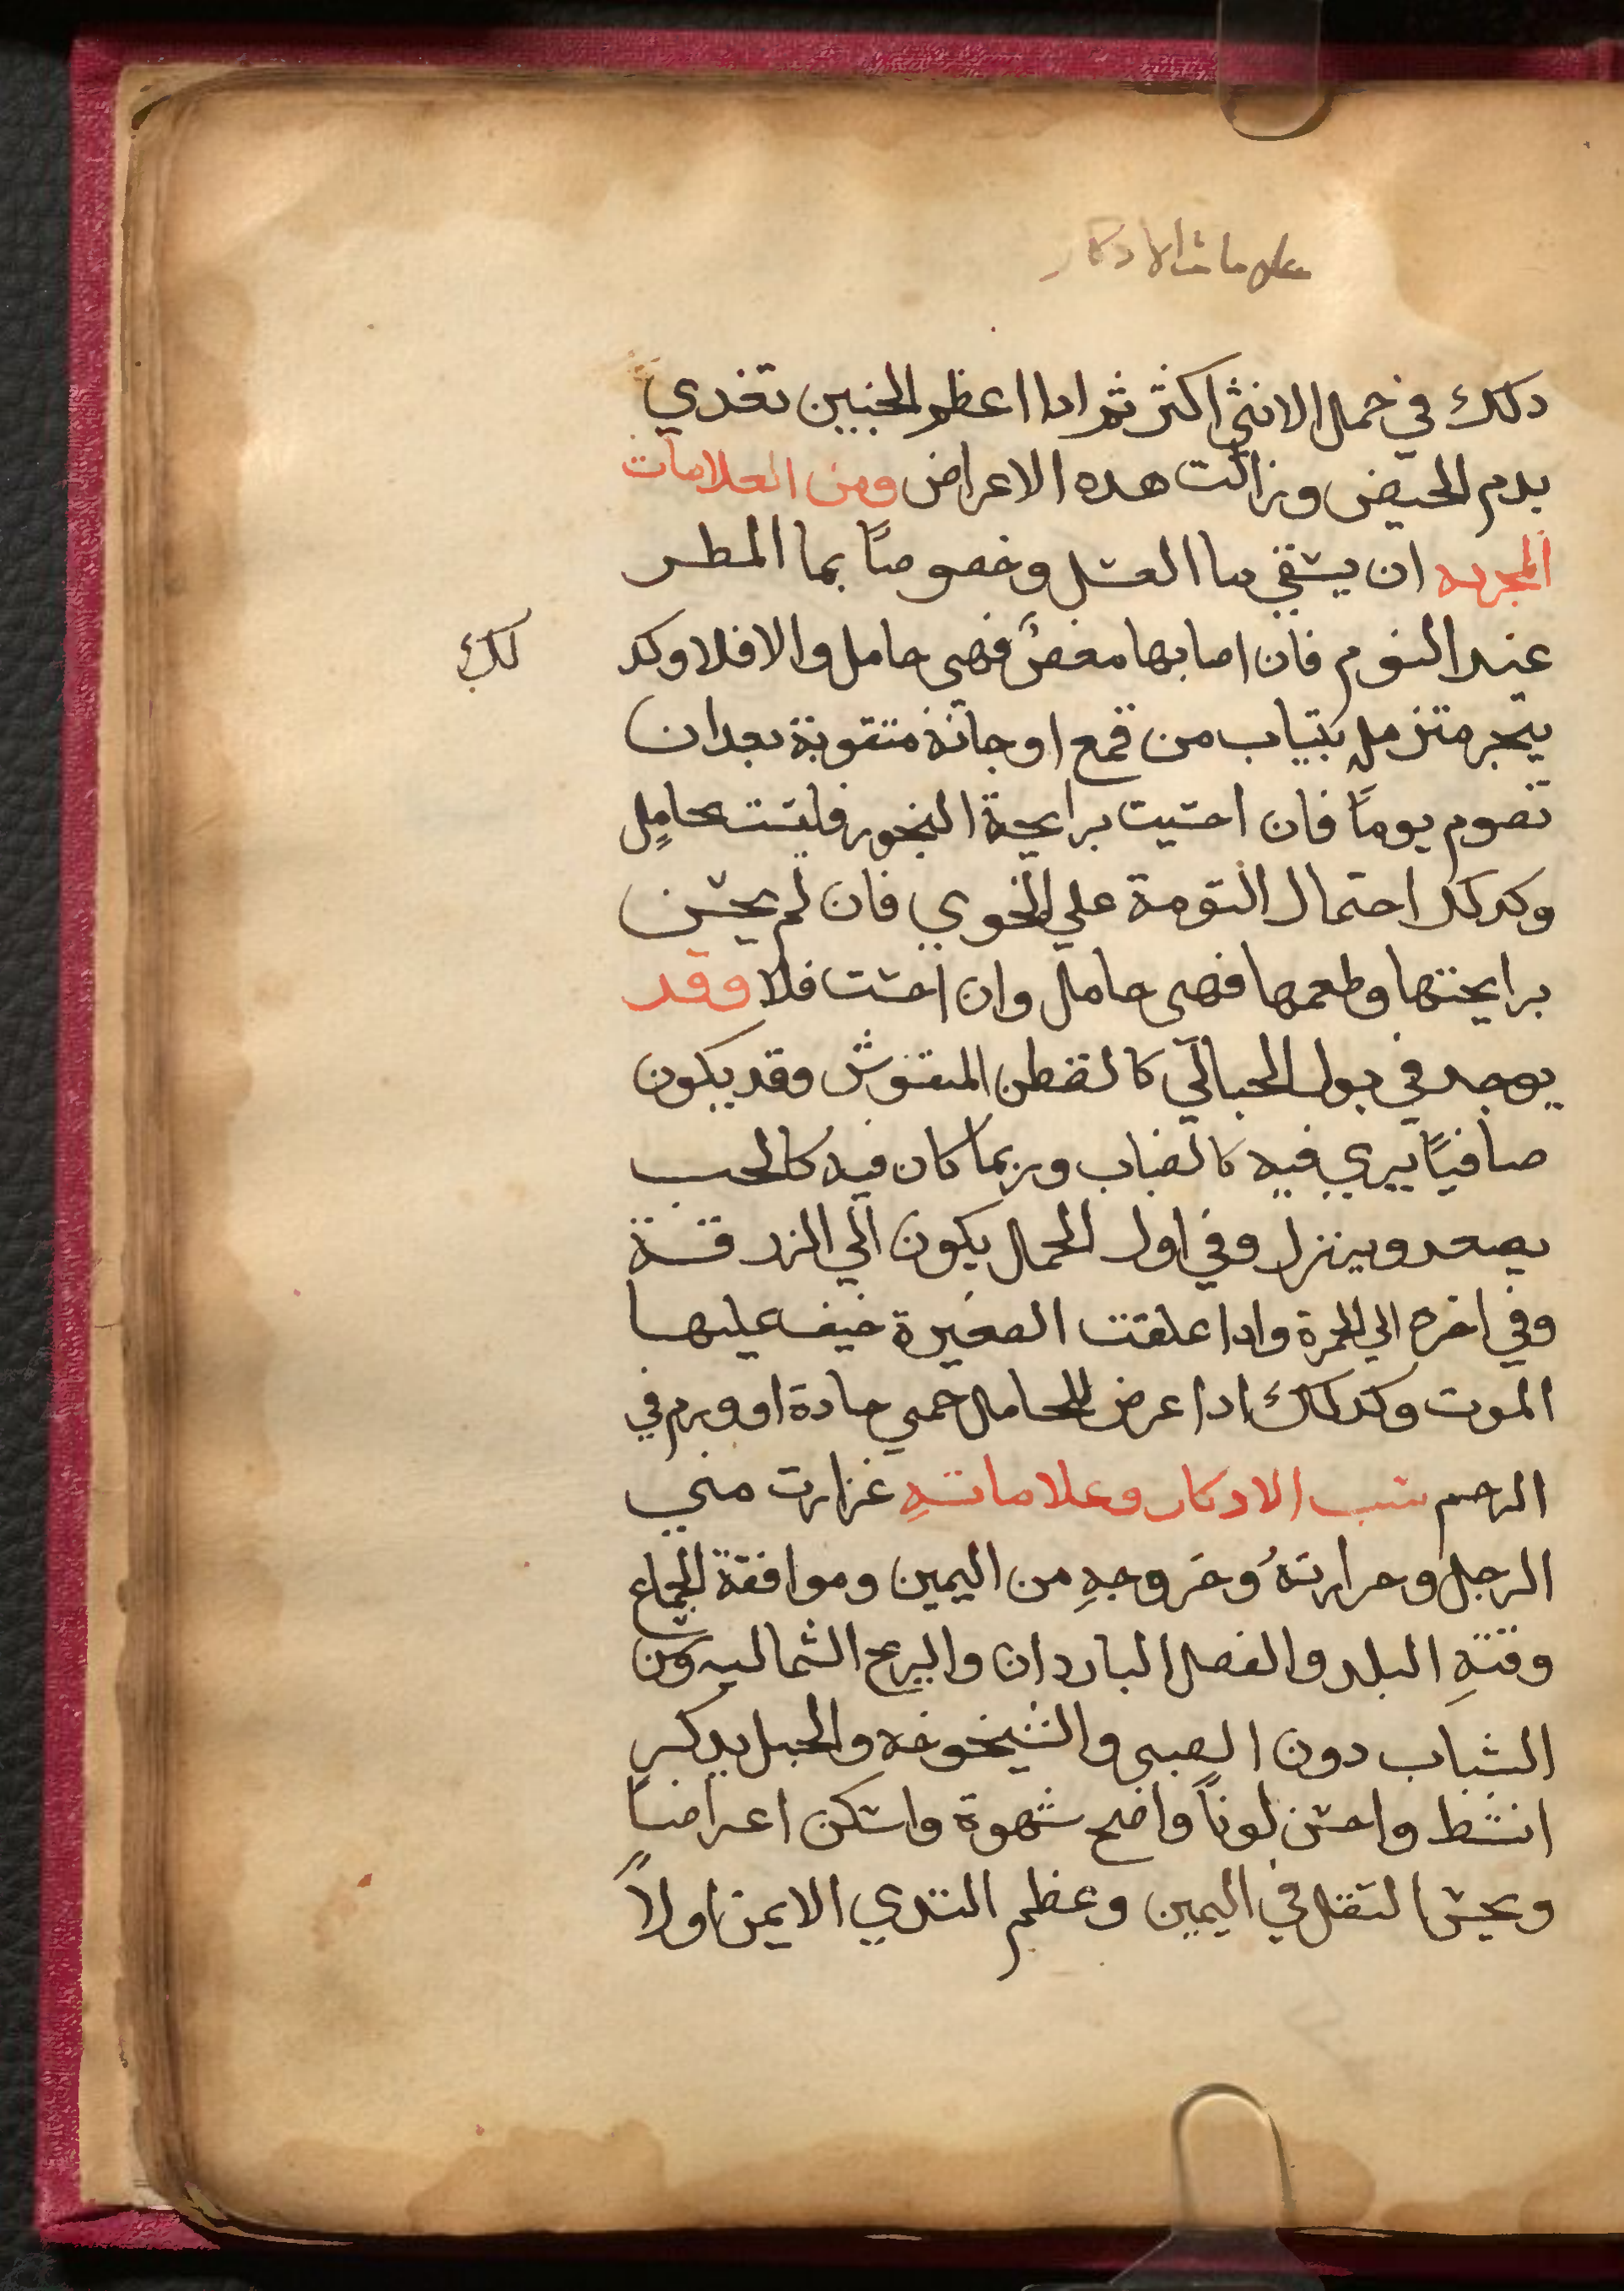 علامات الادكار
دلك في حمل الانثي اكثر ثم ادا اعظم الجنين تغدي
بدم الحيض وزالت هده الاعراض ومن العلامات
المجربه ان يسقي ما العسل وخصوصاً بما المطر
عند النوم فان اصابها مغصٌ فهي حامل والا فلا وكد
لك
يتبخر متزمل بتياب من قمع او جانة متقوبة بعد ان
تصوم يوماً فان احسيت برايحة البخور فليست بحاملٍ
وكدلك احتمال التومة علي الخوي فان لم يحسن
برايحتها وطعمها فهي حامل وان احست فلا وقد
يوجد في بول الحبالي كالقطن المنفوش وقد يكون
صافياً يري فيه كالضباب وربما كان فيه كالحب
يصعد وينزل وفي اول الحمل يكون الي الزرقة
وفي اخره الي الحمرة وادا علقت الصغيرة خيف عليها
الموت وكدلك ادا عرض للحامل حمي حادة او ورم في
الرحم سبب الادكار وعلاماتهِ غزارت مني
الرجل وحرارتهُ وخروجهِ من اليمين وموافقة الجماع
وقتهِ البلد والفصل الباردان والريح الشماليه وسن
الشباب دون الصبي والشيخوخه والحبل بدكر
انشط واحسن لوناً واصح شهوة واسكن اعراضاً
وبحس التقل في اليمين وعظم التدي الايمن اولاً